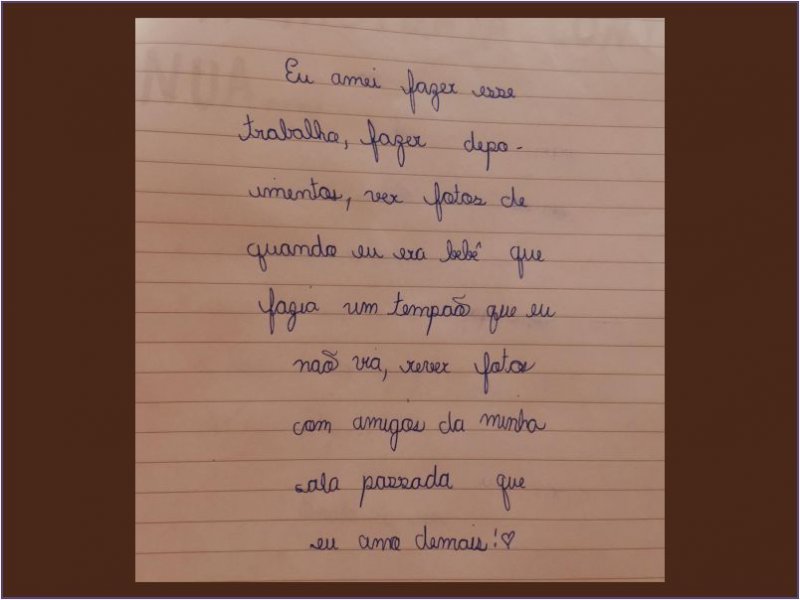 Eu amei fazer esse
trabalho, fazer depo-
imentos, ver fotos de
quando eu era bebê que
fazia um tempão que eu
não via, rever fotos
com amigos da minha
sala passada que
eu amo demais!♡